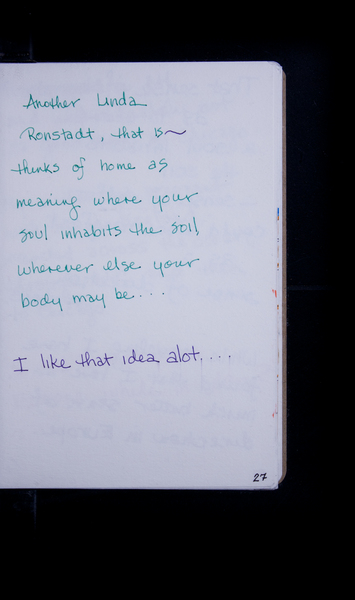 Another Linda
Ronstadt, that is~
thinks of home as
meaning where your
soul inhabits the soil,
wherever else your
body may be...
I like that idea alot....
27